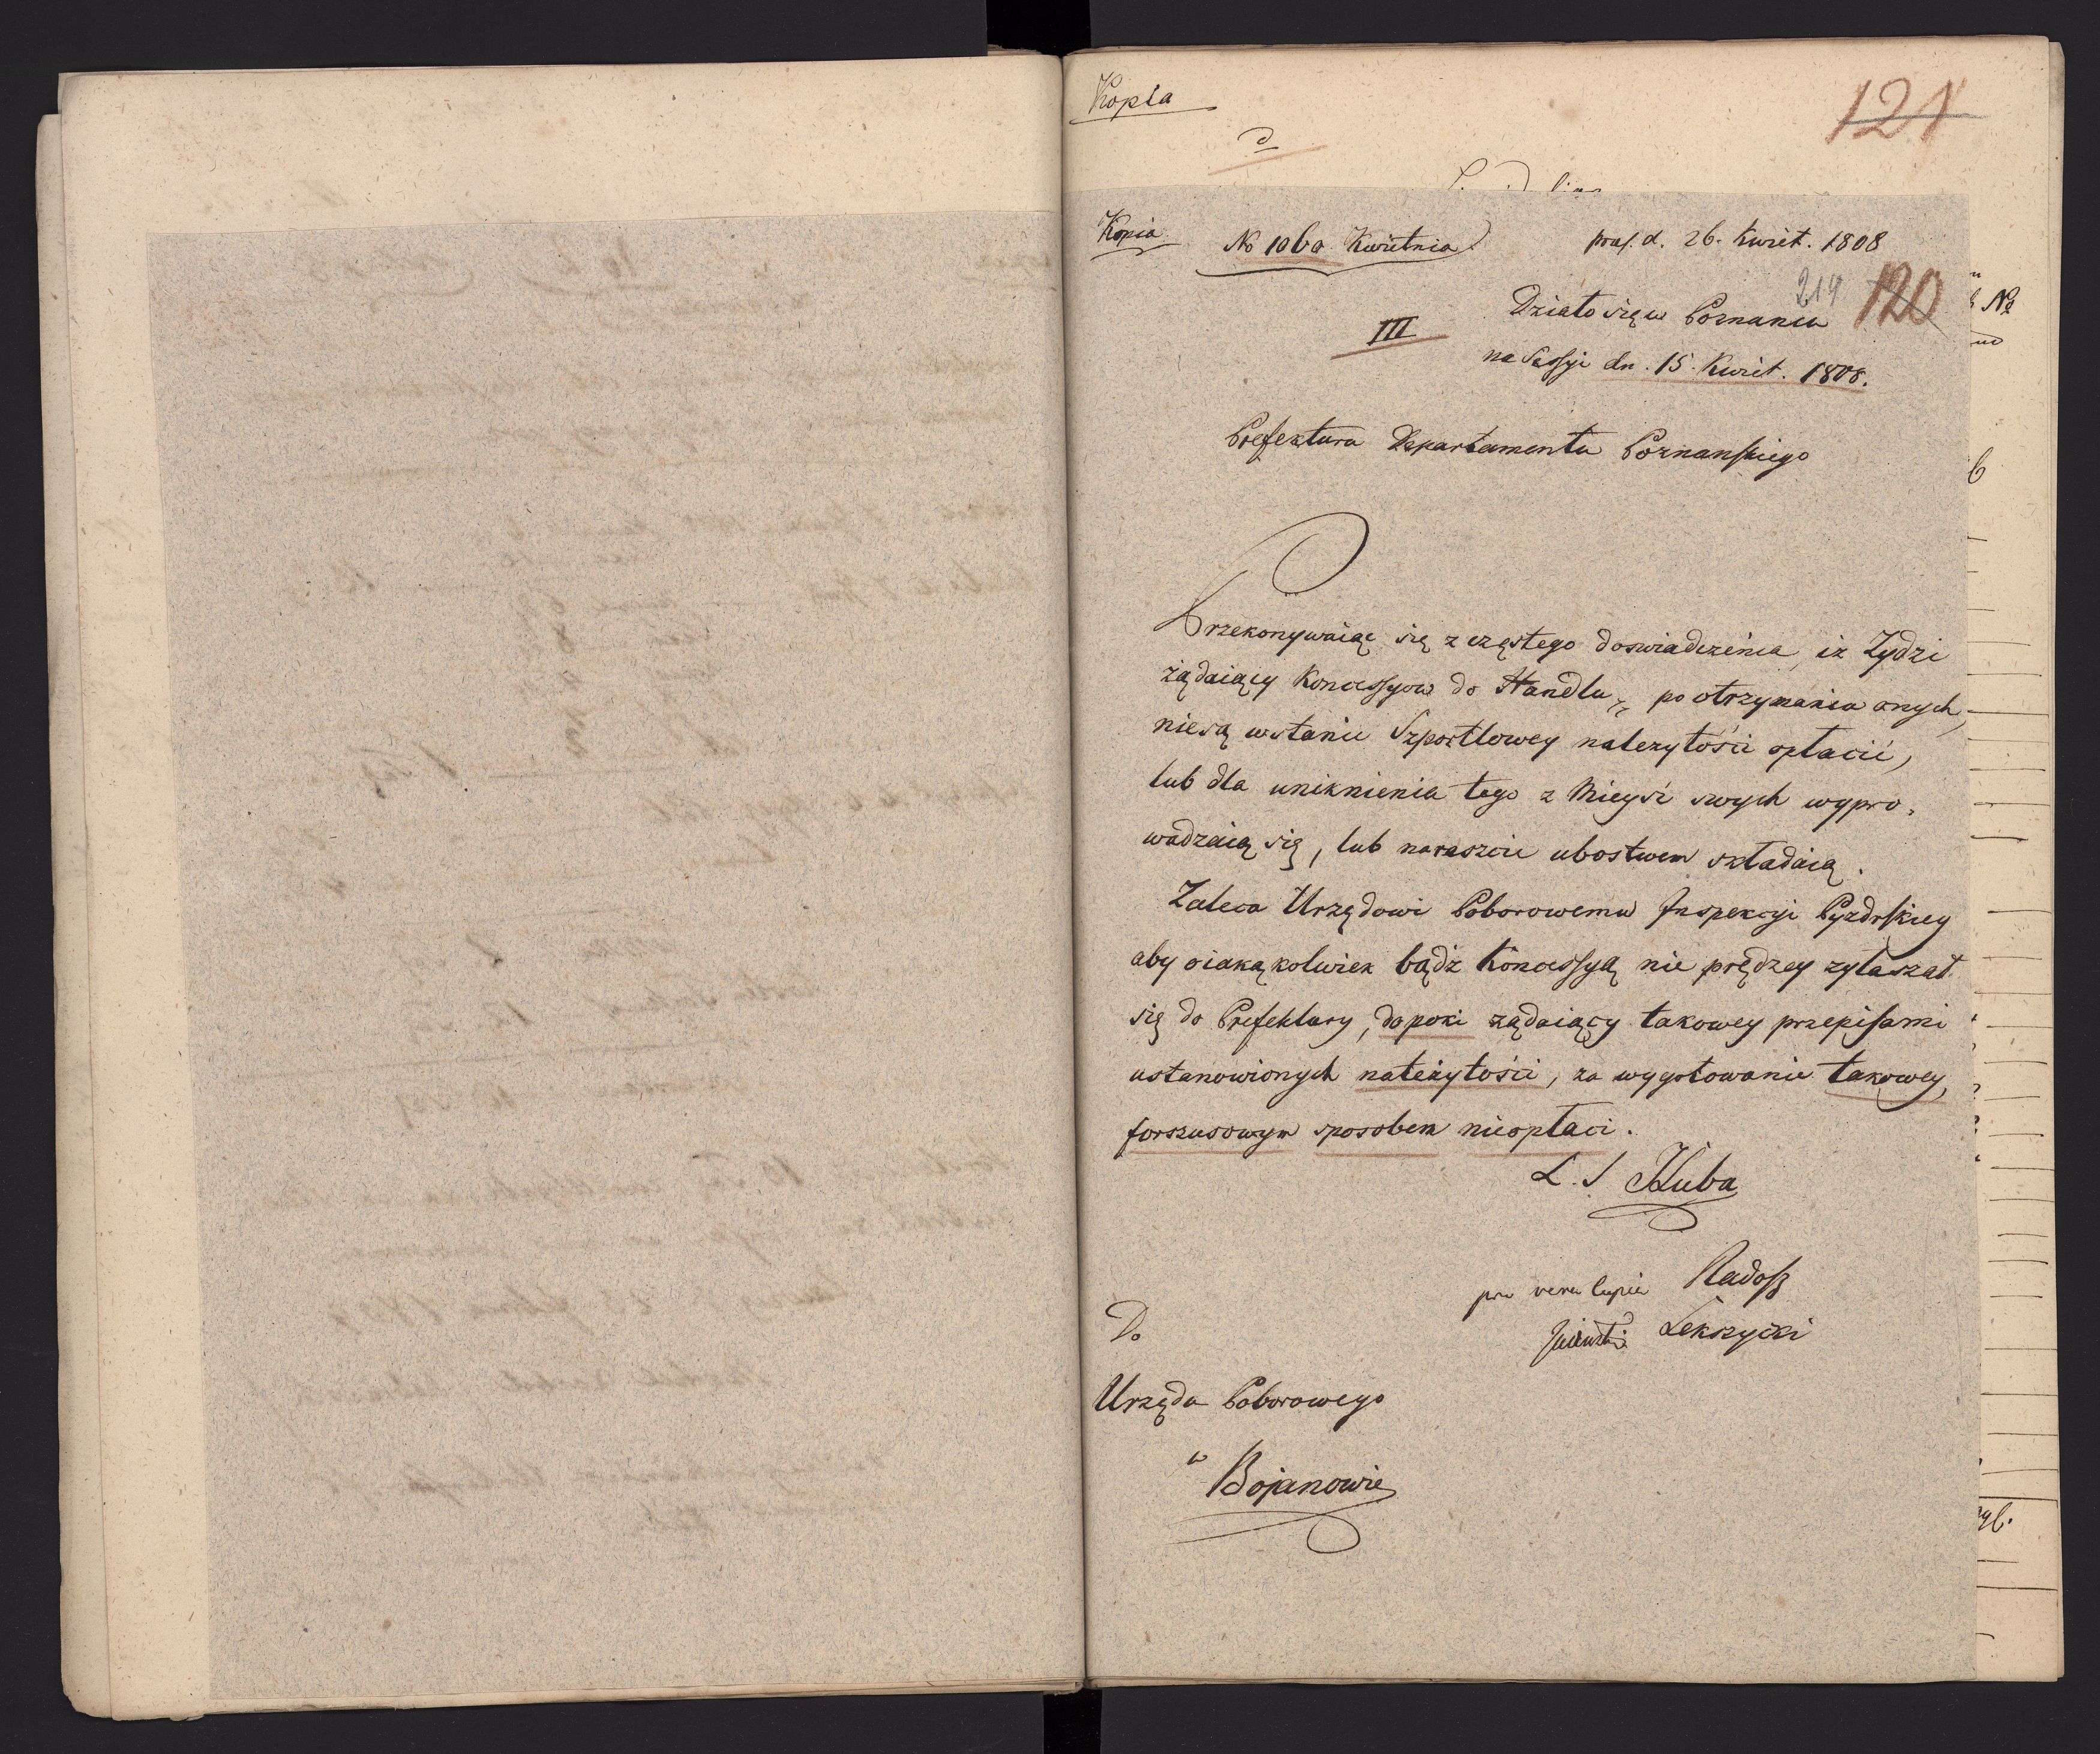 Kopia
121
Kopia
No 1060 Kwietnia
praes. d. 26. Kwiet. 1808
219 120
III
Działo się w Poznaniu
na Sessyi dn. 15. Kwiet. 1808.
Prefektura Departamentu Poznanskiego
Przekonywaiąc się z częstego doswiadczenia, iż Zydzi
żądaiący Koncessyow do Handlu, po otrzymaniu onych,
niesą wstanie Szportlowey należytości opłacić,
lub dla uniknienia tego z Mieysc swych wypro-
wadzaią się, lub nareszcie ubostwem składaią.
Zaleca Urzędowi Poborowemu Inspekcyi Pyzdrskiey
aby oiakąkolwiek bądź Koncessyą nie prędzey zgłaszał
się do Prefektury, dopoki żądaiący takowey przepisami
ustanowionych należytości, za wygotowanie takowey,
forszusowym sposobem nieopłaci.
L. S Kuba
pro vera Copia Radosz
Lekszycki
Do
Urzędu Poborowego
w
Bojanowie
No